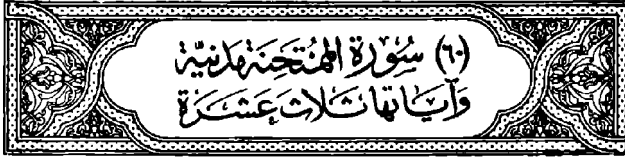 (٦٠) سُورَة المُمْتَحنَة مَدنيَّة
وَآيَاتهَا ثَلَاثَ عَشَرَة